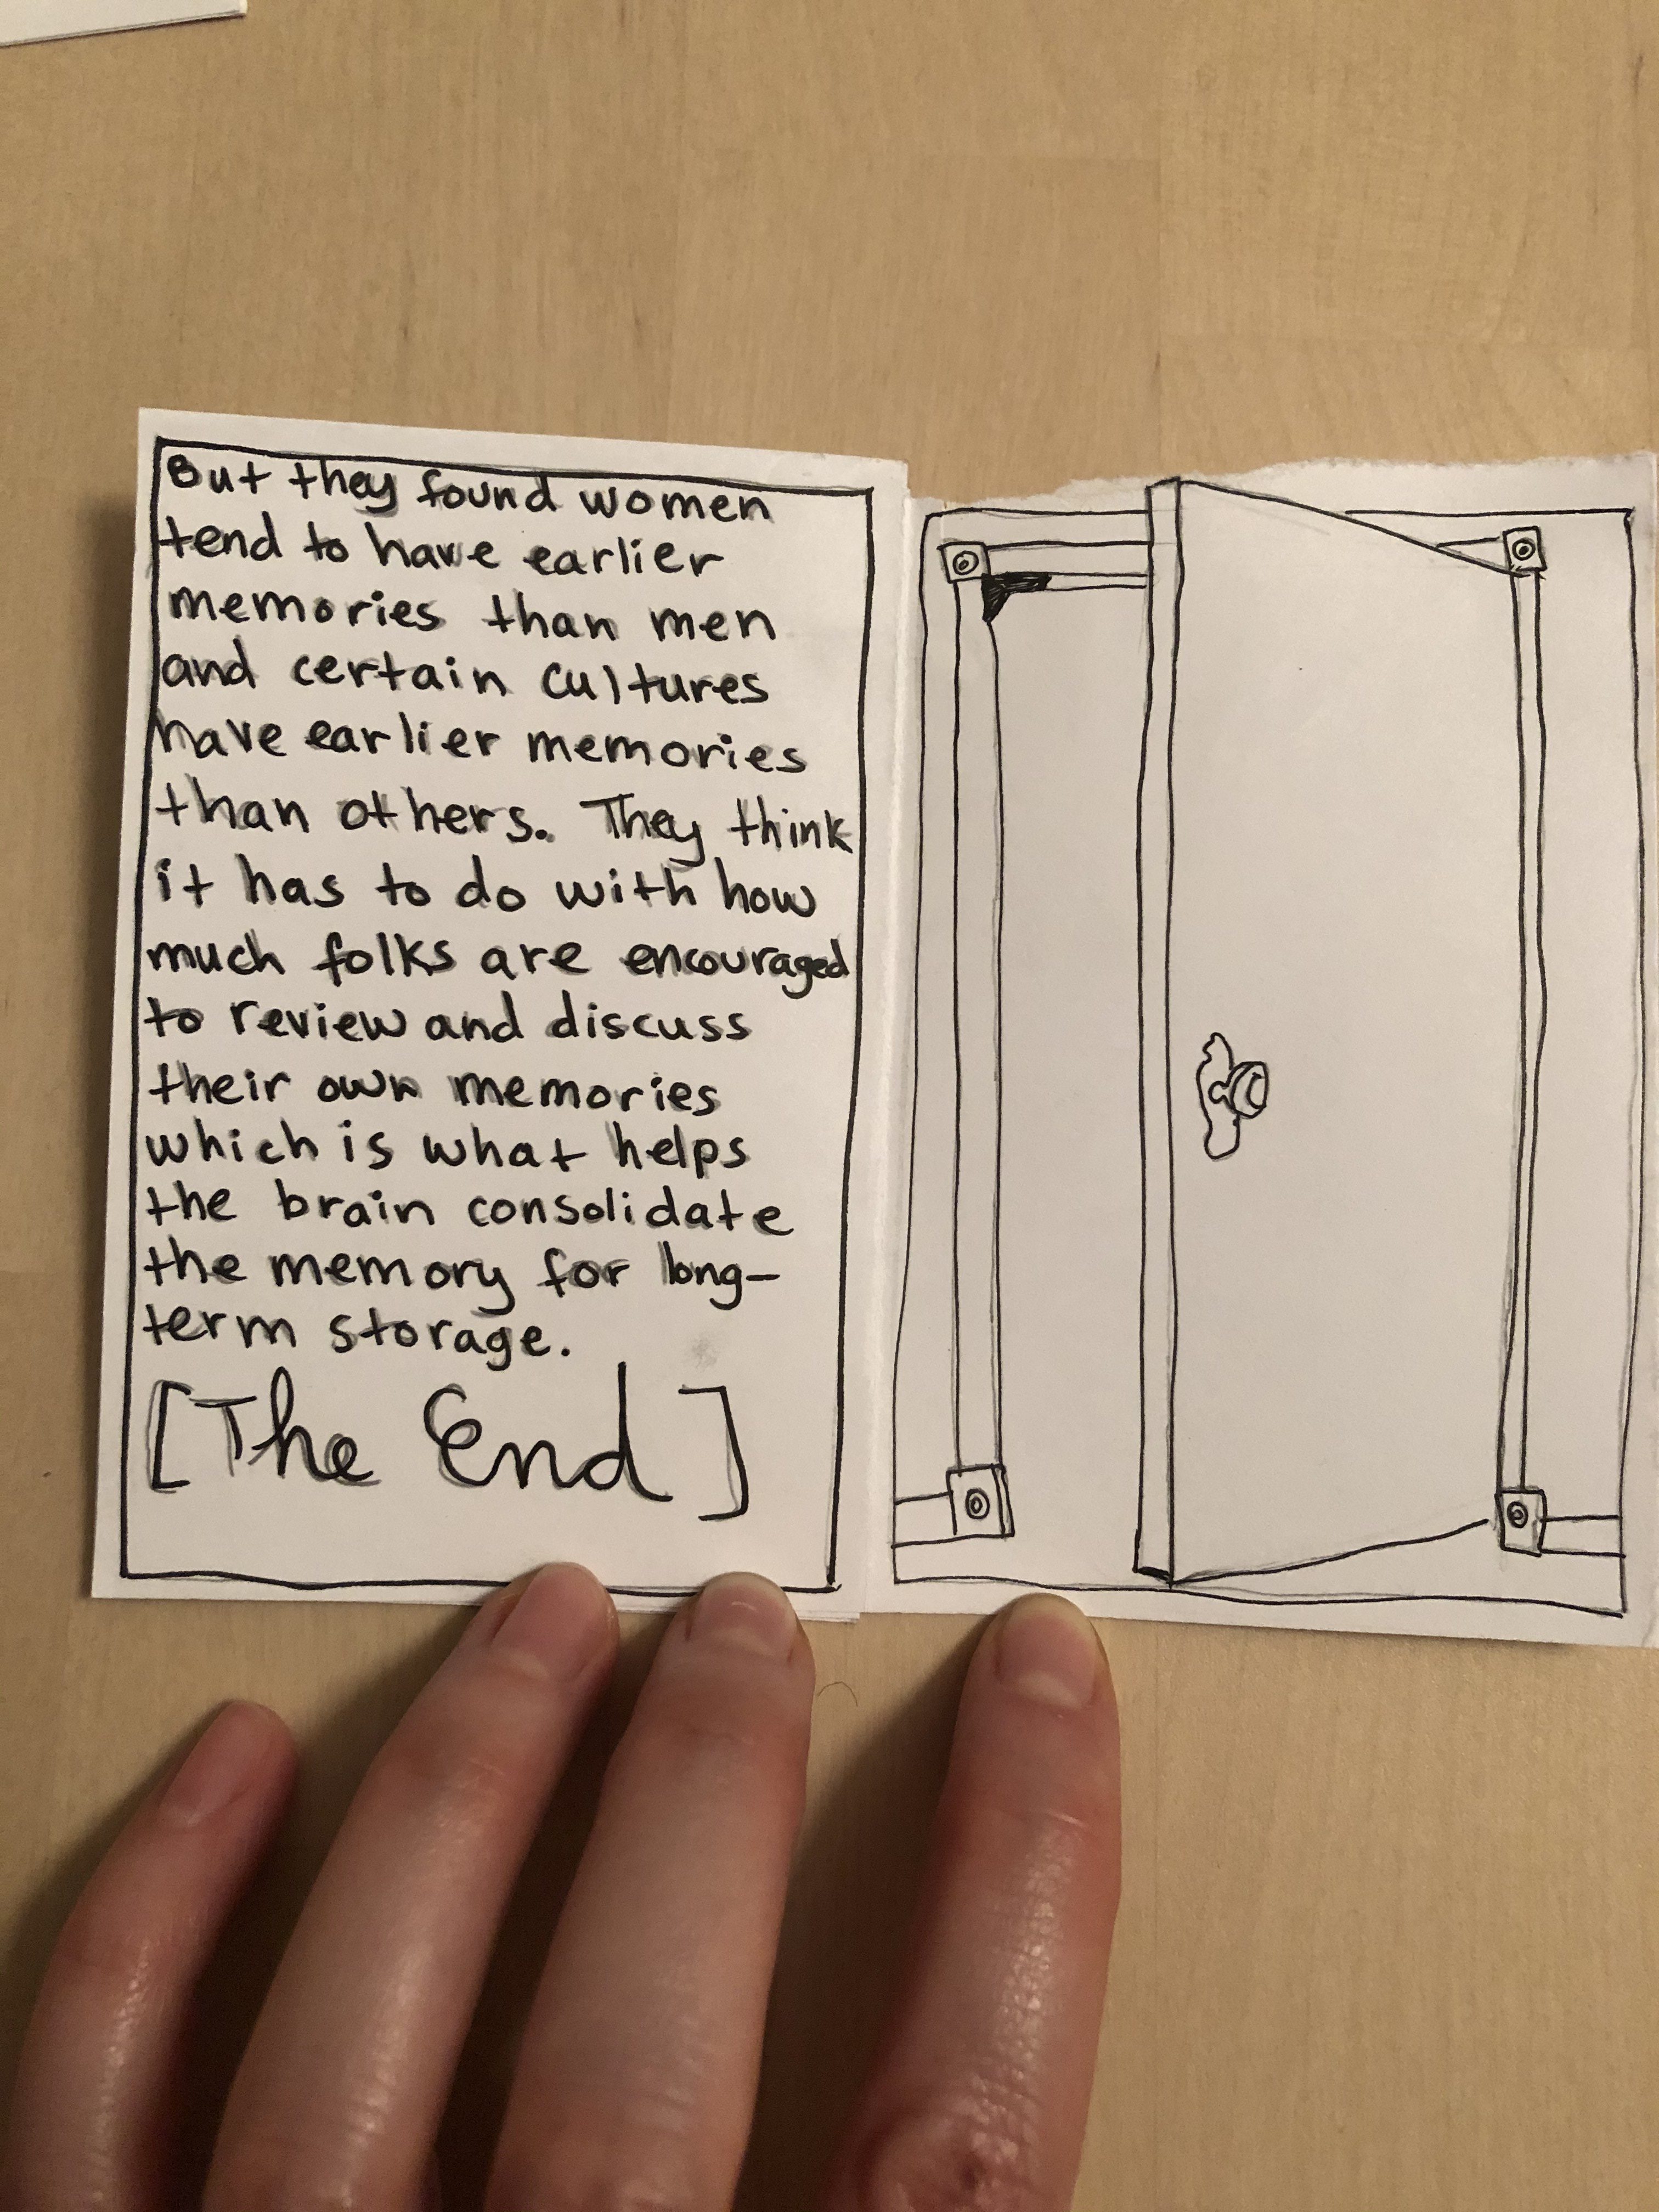 But they found women
tend to have earlier
memories than men
and certain cultures
have earlier memories
than others. They think
it has to do with how
much folks are encouraged
to review and discuss
their own memories
which is what helps
the brain consolidate
the memory for long-
term storage.
[The End]